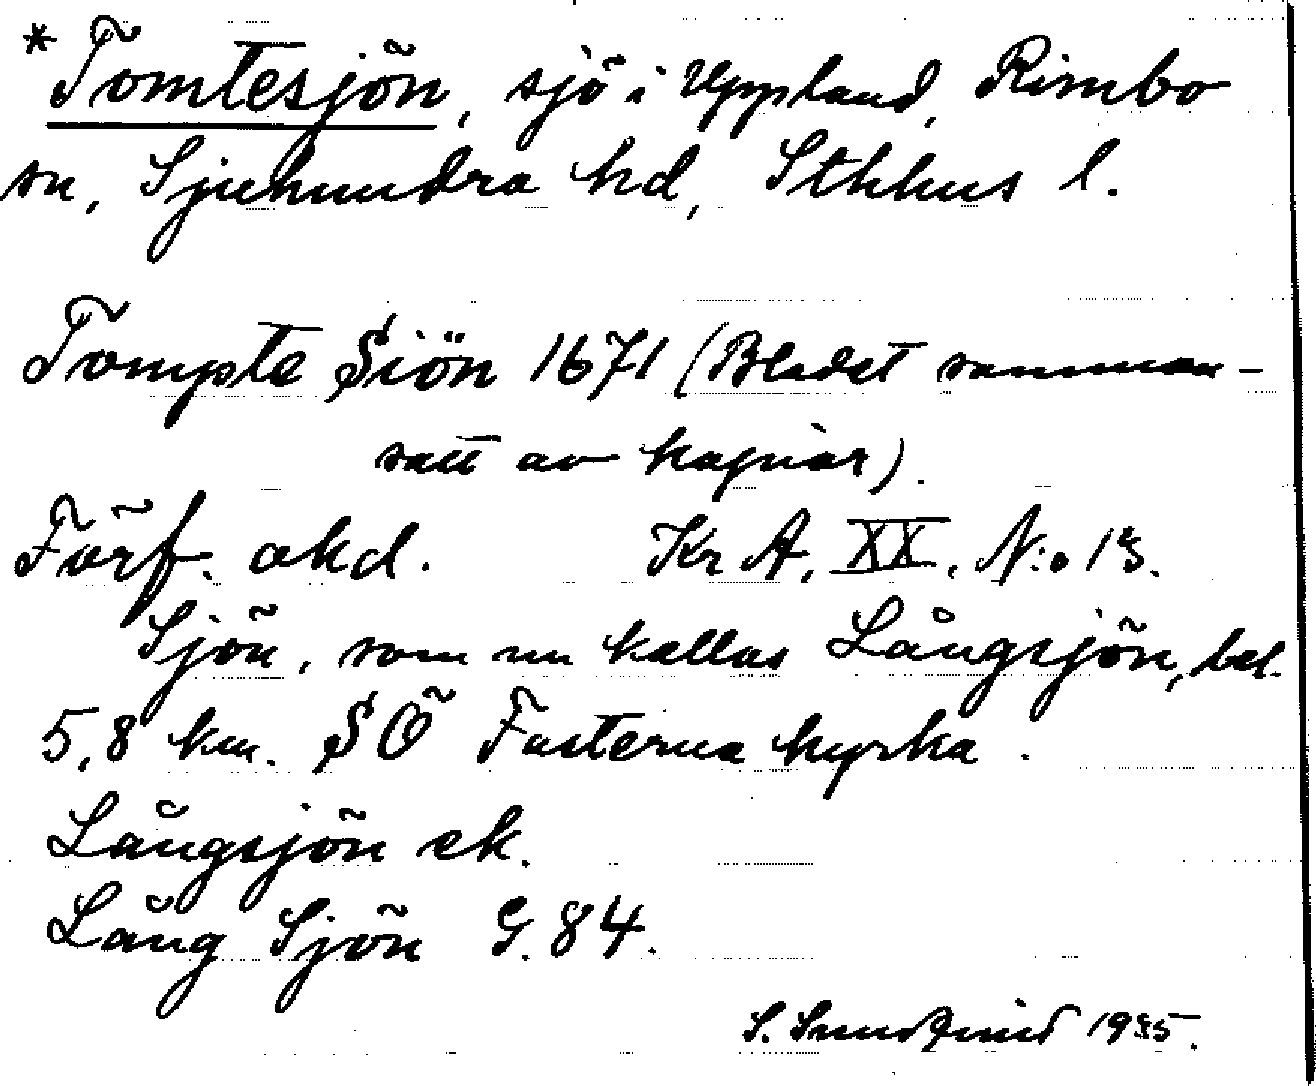 *Tomtesjön, sjö i Uppland, Rimbo
sn, Sjuhundra hd, Sthlms l.
Tompte Siön 1671 (Bladet samman-
satt av kopior).
Förf. okd. Kr A, XX, N:o 13.
Sjön, som nu kallas Långsjön, bel.
5,8 km. SÖ Fasterna kyrka.
Långsjön ek.
Lång Sjön G. 84.
S. 1935.